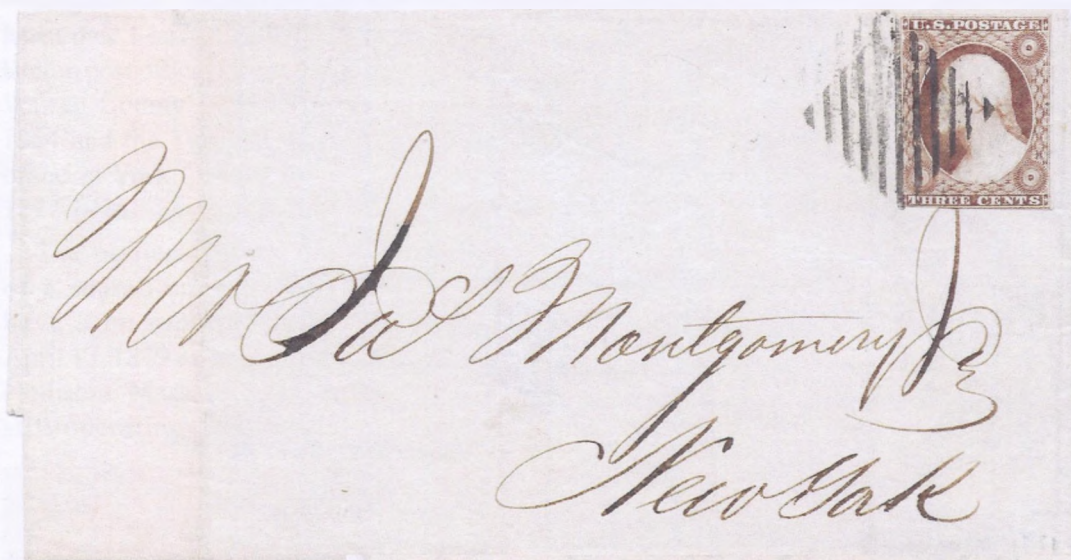 U.S. POSTAGE
THREE CENTS
Mr Jas Montgomery Jr
New York